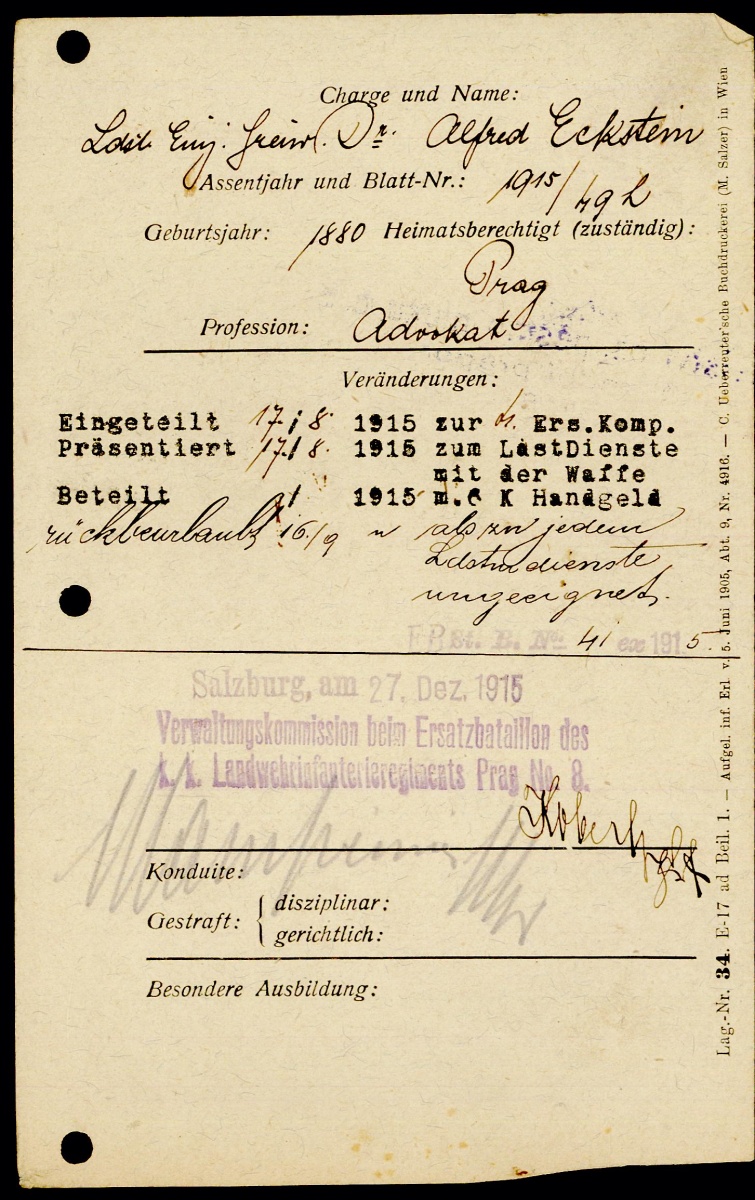 Charge und Name:
Ldst. Einj. Freiw. Dr. Alfred Eckstein
Assentjahr und Blatt-Nr.: 1915/
Geburtsjahr: 1880 Heimatsberechtigt (zuständig):
Prag
Profession: Advokat
Veränderungen:
Eingeteilt 17./8. 1915 zur Ers.Komp.
Präsentiert 17./8. 1915 zum LastDienste
mit der Waffe
Beteilt / 1915 m. 6 K Handgeld
rückbeurlaubt 16/9 als zu jedem
Ldstmdienste
ungeeignet.
E.B.St. B. No. 41 ex 1915.
Salzburg, am 27. Dez. 1915
Verwaltungskommission beim Ersatzbataillon des
k. k. Landwehrinfanterieregiments Prag No. 8.
Konduite:
Gestraft: { disziplinar:
gerichtlich:
Besondere Ausbildung:
Lag.-Nr. 34. E-17 ad Beil. 1. — Aufgel. inf. Erl v. 5. Juni 1905, Abt. 9, Nr. 4916. — C. Ueberreuter'sche Buchdruckerei (M. Salzer) in Wien